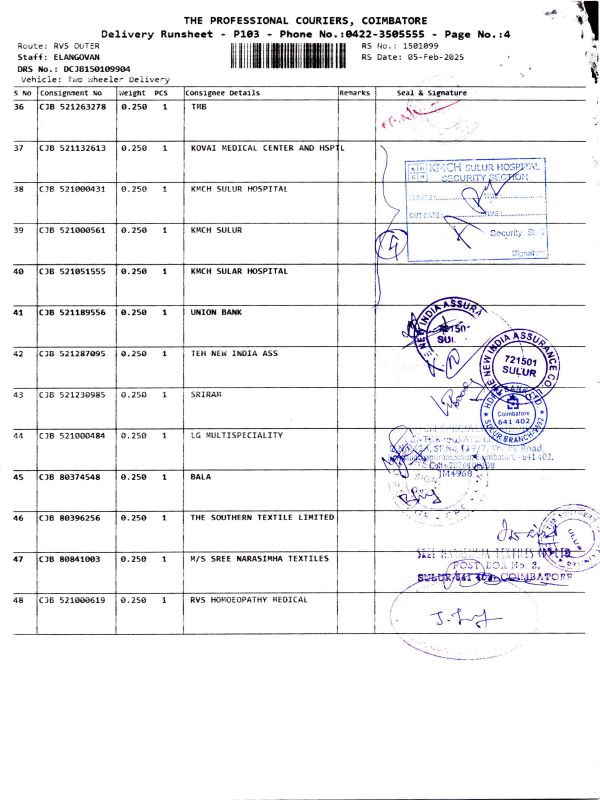 THE PROFESSIONAL COURIERS, COIMBATORE
Delivery Runsheet - P103 - Phone No.:0422-3505555 - Page No.:4
Route: RVS OUTER
RS No.: 1501099
Staff: ELANGOVAN
RS Date: 05-Feb-2025
DRS No.: DCJB150109904
Vehicle: Two Wheeler Delivery
S No Consignment No Weight PCS Consignee Details Remarks Seal & Signature
36 CJB 521263278 0.250 1 TMB
37 CJB 521132613 0.250 1 KOVAI MEDICAL CENTER AND HSPTL
KMCH SULUR HOSPITAL
SECURITY SECTION
38 CJB 521000431 0.250 1 KMCH SULUR HOSPITAL
IN DATE: TIME:
OUT DATE: TIME:
39 CJB 521000561 0.250 1 KMCH SULUR
Security
Signature
40 CJB 521051555 0.250 1 KMCH SULAR HOSPITAL
41 CJB 521189556 0.250 1 UNION BANK
NEW INDIA ASSURA
72150
SUL
42 CJB 521287095 0.250 1 TEH NEW INDIA ASS
THE NEW INDIA ASSURANCE CO.
721501
SULUR
43 CJB 521230985 0.250 1 SRIRAM
BANK
Coimbatore
641 402
SULUR BRANCH
44 CJB 521000484 0.250 1 LG MULTISPECIALITY
Road
641 402.
45 CJB 80374548 0.250 1 BALA
46 CJB 80396256 0.250 1 THE SOUTHERN TEXTILE LIMITED
47 CJB 80841003 0.250 1 M/S SREE NARASIMHA TEXTILES
SREE NARASIMHA TEXTILES
POST BOX No: 3,
SULUR 641 402, COIMBATORE
48 CJB 521000619 0.250 1 RVS HOMOEOPATHY MEDICAL